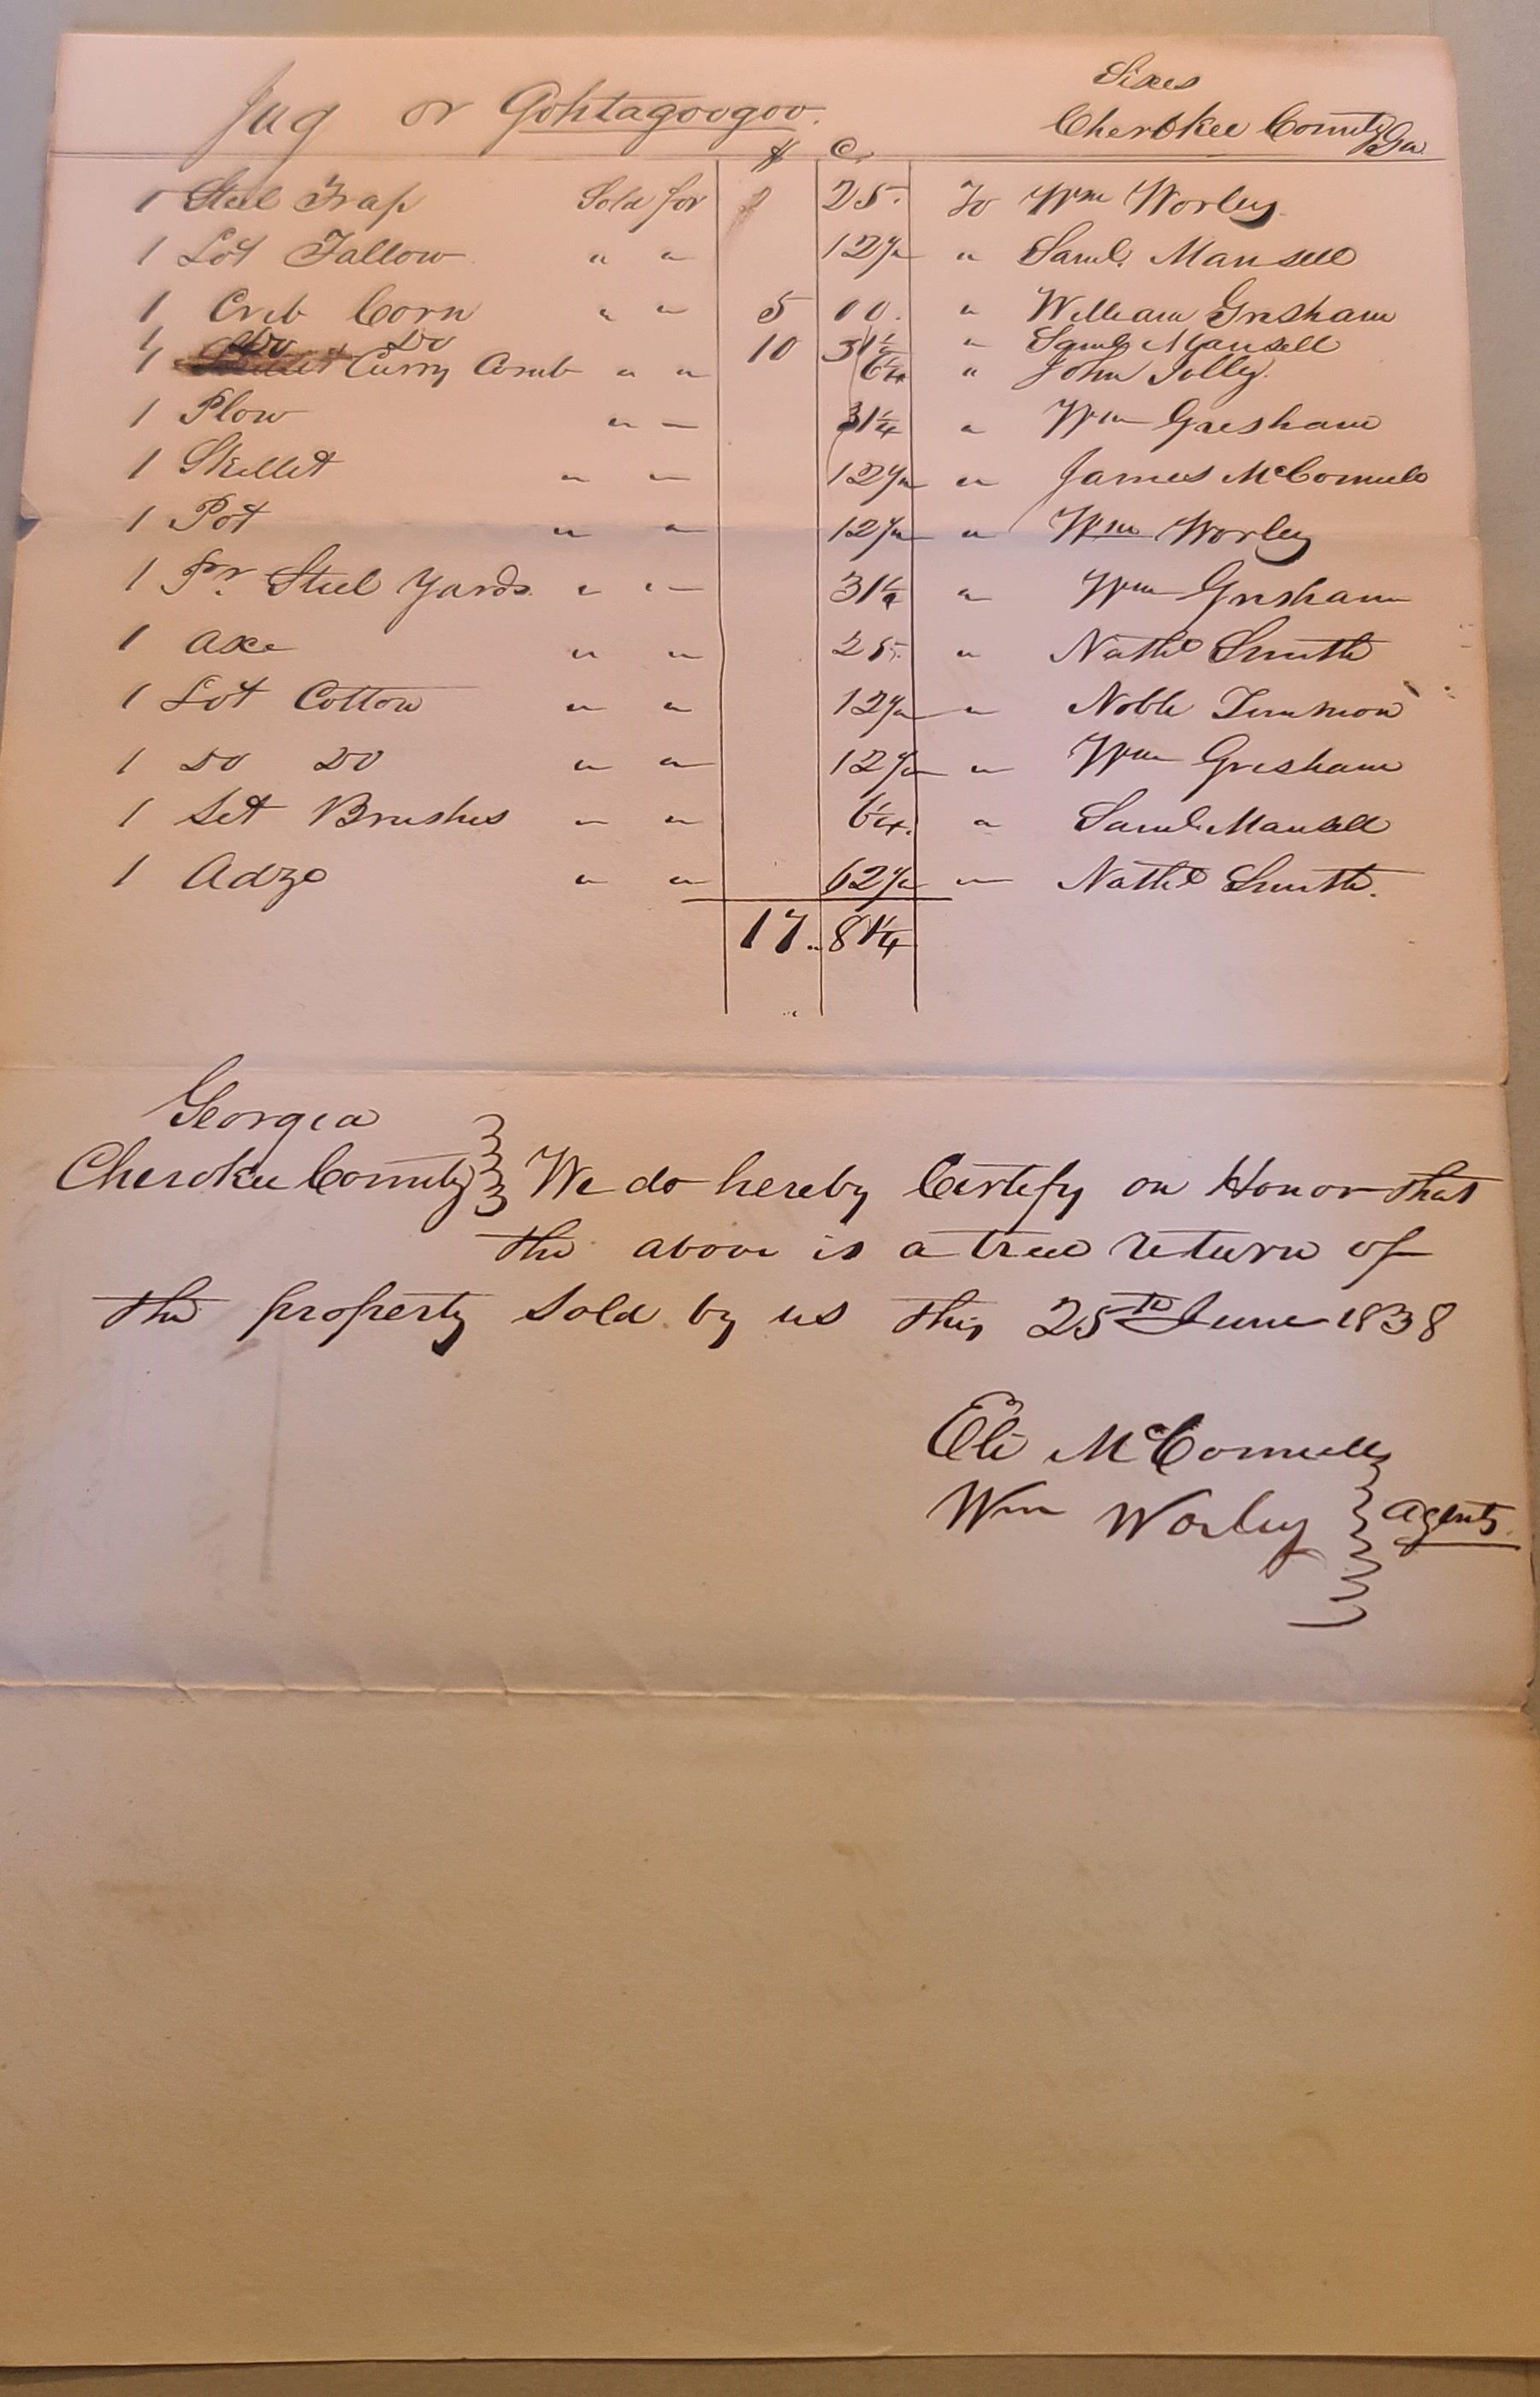 Sixes
Jug or Gohtagoogoo. Cherokee County Ga
$ C.
1 Steel Trap Sold for 25. To Wm Worley.
1 Lot Tallow " " 12½ " Saml. Mansell
1 Crib Corn " " 5 00. " William Grisham
1 Do Do 10 31¼ " Saml Mansell
1 Curry Comb " " 6¼ " John Jolly.
1 Plow " " 31¼ " Wm Gresham
1 Skillet " " 12½ " James McConnell
1 Pot " " 12½ " Wm Worley
1 Pr. Steel Yards " " 31¼ " Wm Grisham
1 Axe " " 25. " Nathl Smith
1 Lot Cotton " " 12½ " Noble Timmon
1 Do Do " " 12½ " Wm Grisham
1 Set Brushes " " 6¼. " Saml. Mansell
1 Adze " " 62½ " Nathl Smith.
17.. 81¼
Georgia
Cherokee County We do hereby Certify on Honor that
the above is a true return of
the property sold by us this 25th June 1838
Eli McConnell
Wm Worley Agents.